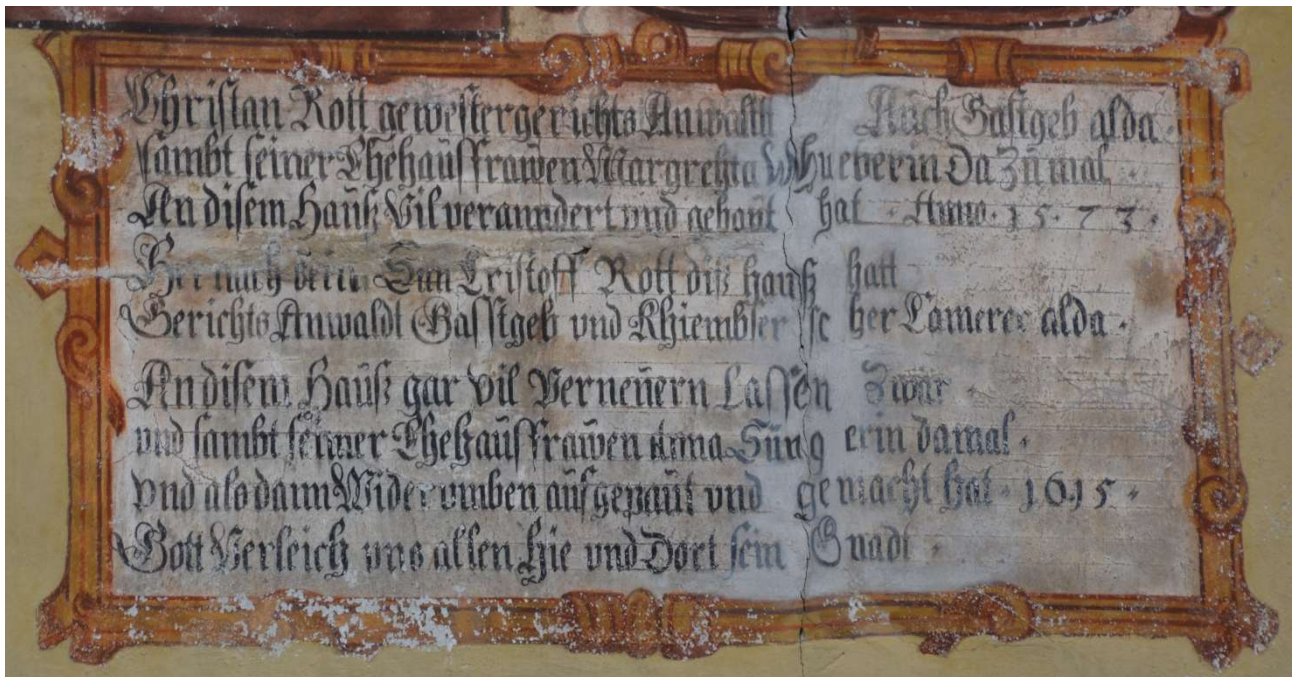 Christan Rott gewester gerichts Anwaltt Auch Gastgeb alda.
sambt seiner Ehehaüsfraẅen Margrehta Hueberin Da Zu mal
An disem Hauß Vil veranndert und gebaüt hat. Anno. 1573.
Her nach Sun Cristoff Rott diß hauß hatt
Gerichts Anwaldt Gasstgeb vnd Khiembser ischer Camerer alda.
An disem Hauß gar Vil Verneüern Lassen Zwar
vnd sambt seiner Ehehaüsfraẅen Anna Süngerin damal.
vnd als dann Wider umben aüfgepaüt vnd gemacht hat. 1615.
Gott Verleich vns allen hie vnd Dort sein Gnadt